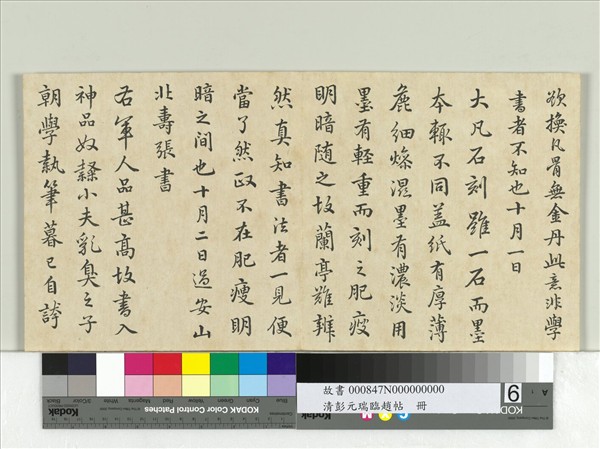 欲換凡骨無金丹此意非學
書者不知也十月一日
大凡石刻雖一石而墨
本輒不同盖紙有厚薄
麄細燥濕墨有濃淡用
墨有輕重而刻之肥瘦
明暗随之故蘭亭難辨
然真知書法者一見便
當了然政不在肥瘦明
暗之間也十月二日過安山
北壽張書
右軍人品甚高故書入
神品奴隸小夫乳臭之子
朝學執筆暮已自誇
故書 000847N000000000
清彭元瑞臨趙帖 冊
KODAK Color Control Patches
Blue Cyan Green Yellow Red Magenta White 3/Color Black
Kodak